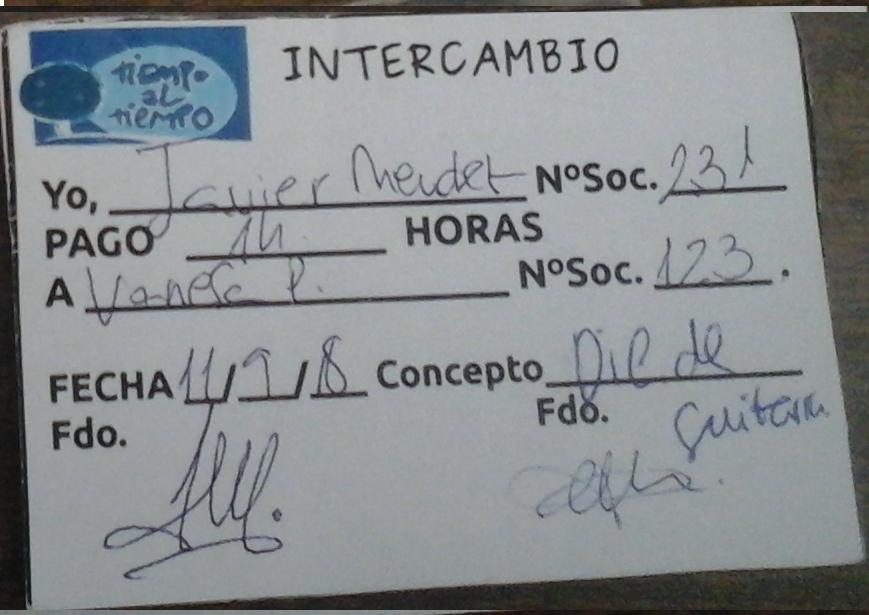 tiempo
al
tiempo
INTERCAMBIO
Yo, Javier Mendet NºSoc. 231
PAGO 1h. HORAS
A Vanesa P. NºSoc. 123.
FECHA 11/9/18 Concepto de
Fdo. Fdo. Guitarra